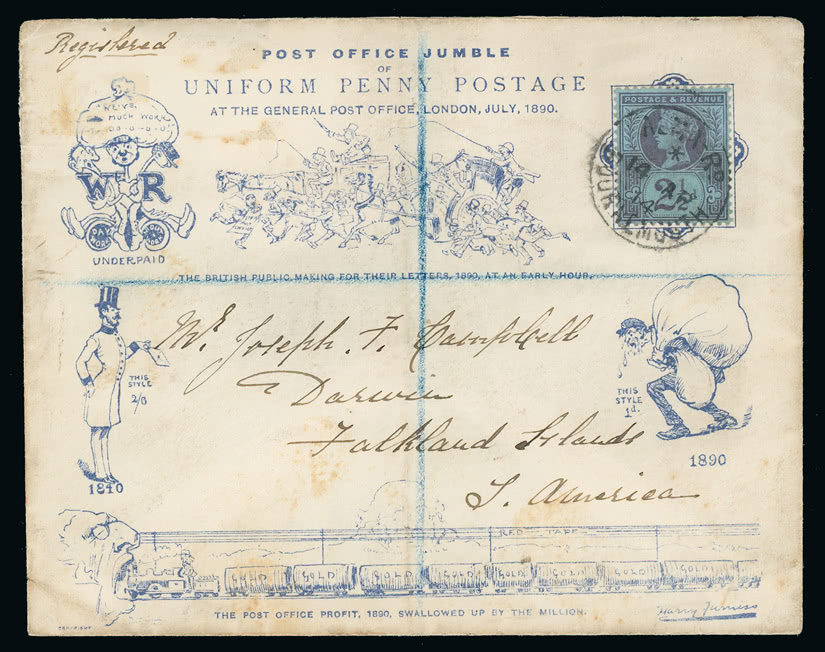 Registered
POST OFFICE JUMBLE
OF
UNIFORM PENNY POSTAGE
AT THE GENERAL POST OFFICE, LONDON, JULY, 1890.
POSTAGE & REVENUE
2½
MUCH WORK
W R
PAY MORE
UNDERPAID
THE BRITISH PUBLIC MAKING FOR THEIR LETTERS, 1890, AT AN EARLY HOUR.
Mr. Joseph. F. Campbell
Darwin
Falkland Islands
S. America
THIS
STYLE
1840
THIS
STYLE
1d.
1890
RED TAPE
GOLD GOLD GOLD GOLD GOLD GOLD GOLD GOLD
THE POST OFFICE PROFIT, 1890, SWALLOWED UP BY THE MILLION.
COPYRIGHT
Harry Furniss